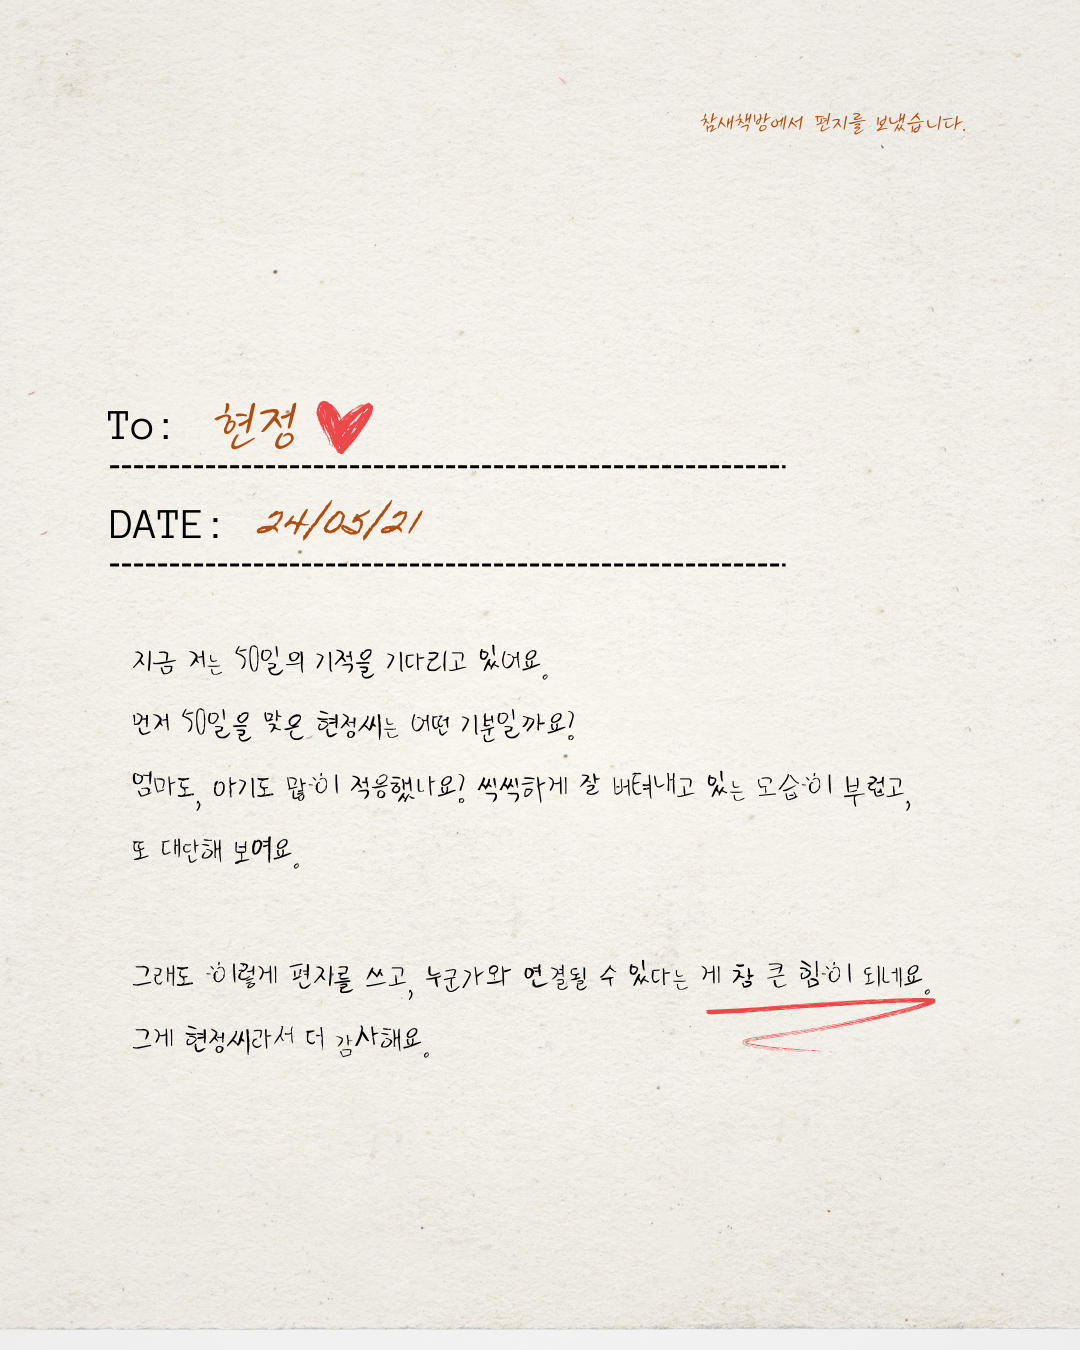 참새책방에서 편지를 보냈습니다.
To: 현정
DATE: 24/05/21
지금 저는 50일의 기적을 기다리고 있어요.
먼저 50일을 맞은 현정씨는 어떤 기분일까요?
엄마도, 아기도 많이 적응했나요? 씩씩하게 잘 버텨내고 있는 모습이 부럽고,
또 대단해 보여요.
그래도 이렇게 편지를 쓰고, 누군가와 연결될 수 있다는 게 참 큰 힘이 되네요.
그게 현정씨라서 더 감사해요.